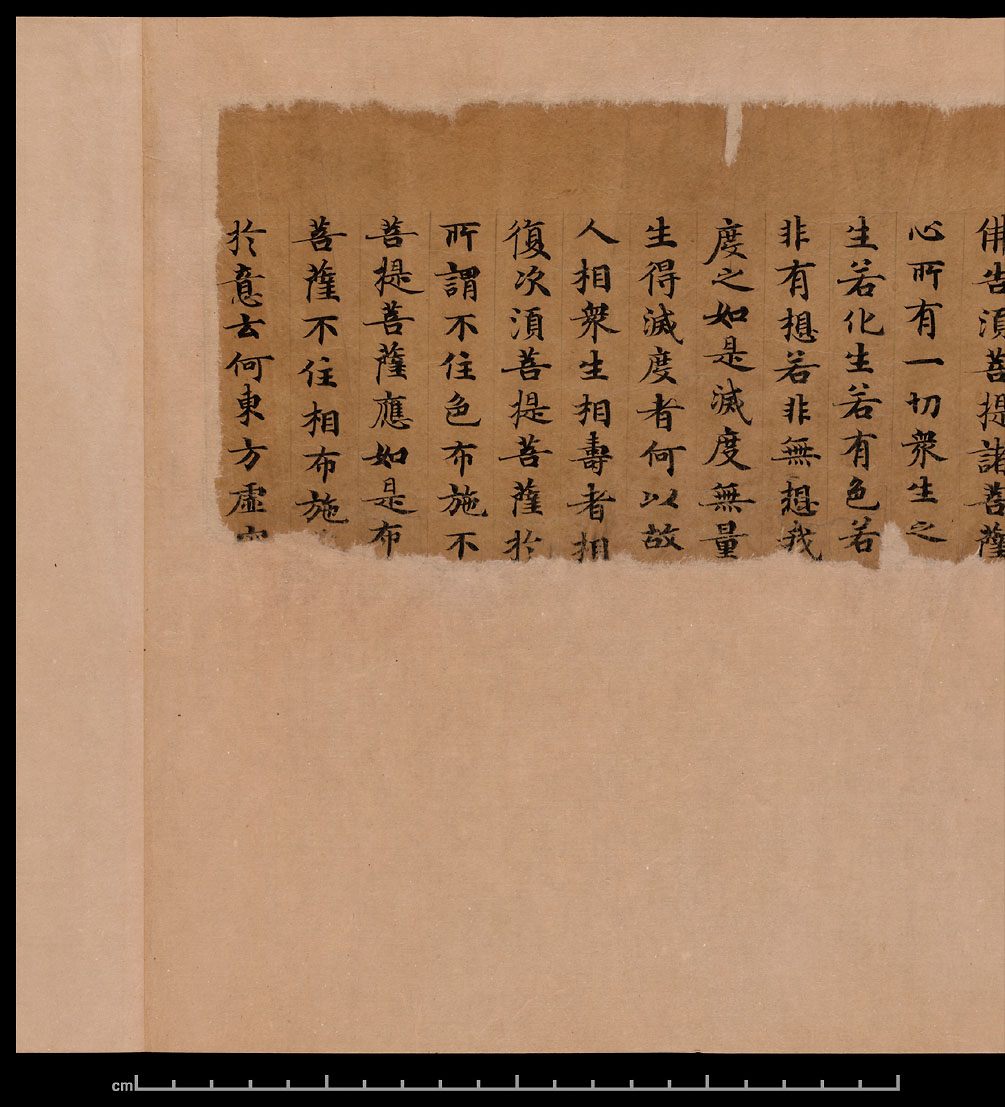 佛告湏菩提諸菩薩
心所有一切衆生之
生若化生若有色若
非有想若非無想我
度之如是滅度無量
生得滅度者何以故
人相衆生相壽者相
復次湏菩提菩薩於
所謂不住色布施不
菩提菩薩應如是布
菩薩不住相布施
於意云何東方虛空
cm